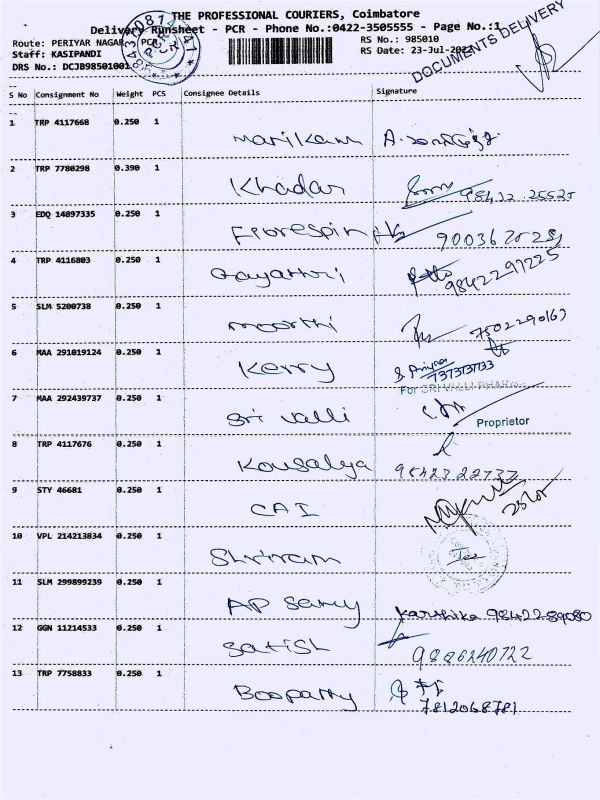 THE PROFESSIONAL COURIERS, Coimbatore
Delivery Runsheet - PCR - Phone No.:0422-3505555 - Page No.:1
Route: PERIYAR NAGAR PCR RS No.: 985010
Staff: KASIPANDI RS Date: 23-Jul-2022
DRS No.: DCJB98501001
DOCUMENTS DELIVERY
S No Consignment No Weight PCS Consignee Details Signature
1 TRP 4117668 0.250 1 Marikam
2 TRP 7780298 0.390 1 Khadar 98412 25525
3 EDQ 14897335 0.250 1
4 TRP 4116803 0.250 1 Gayathri 9842297225
5 SLM 5200738 0.250 1 moorthi 7502290163
6 MAA 291019124 0.250 1 Kerry 7373737133
For SRI VALLI
7 MAA 292439737 0.250 1 Sri valli
Proprietor
8 TRP 4117676 0.250 1 Kousalya
9 STY 46681 0.250 1 CAI
10 VPL 214213834 0.250 1 Shriram
11 SLM 299899239 0.250 1 AP Samy Karthika 9842289080
12 GGN 11214533 0.250 1 Satish 9886240722
13 TRP 7758833 0.250 1 Boopatty 7812068781